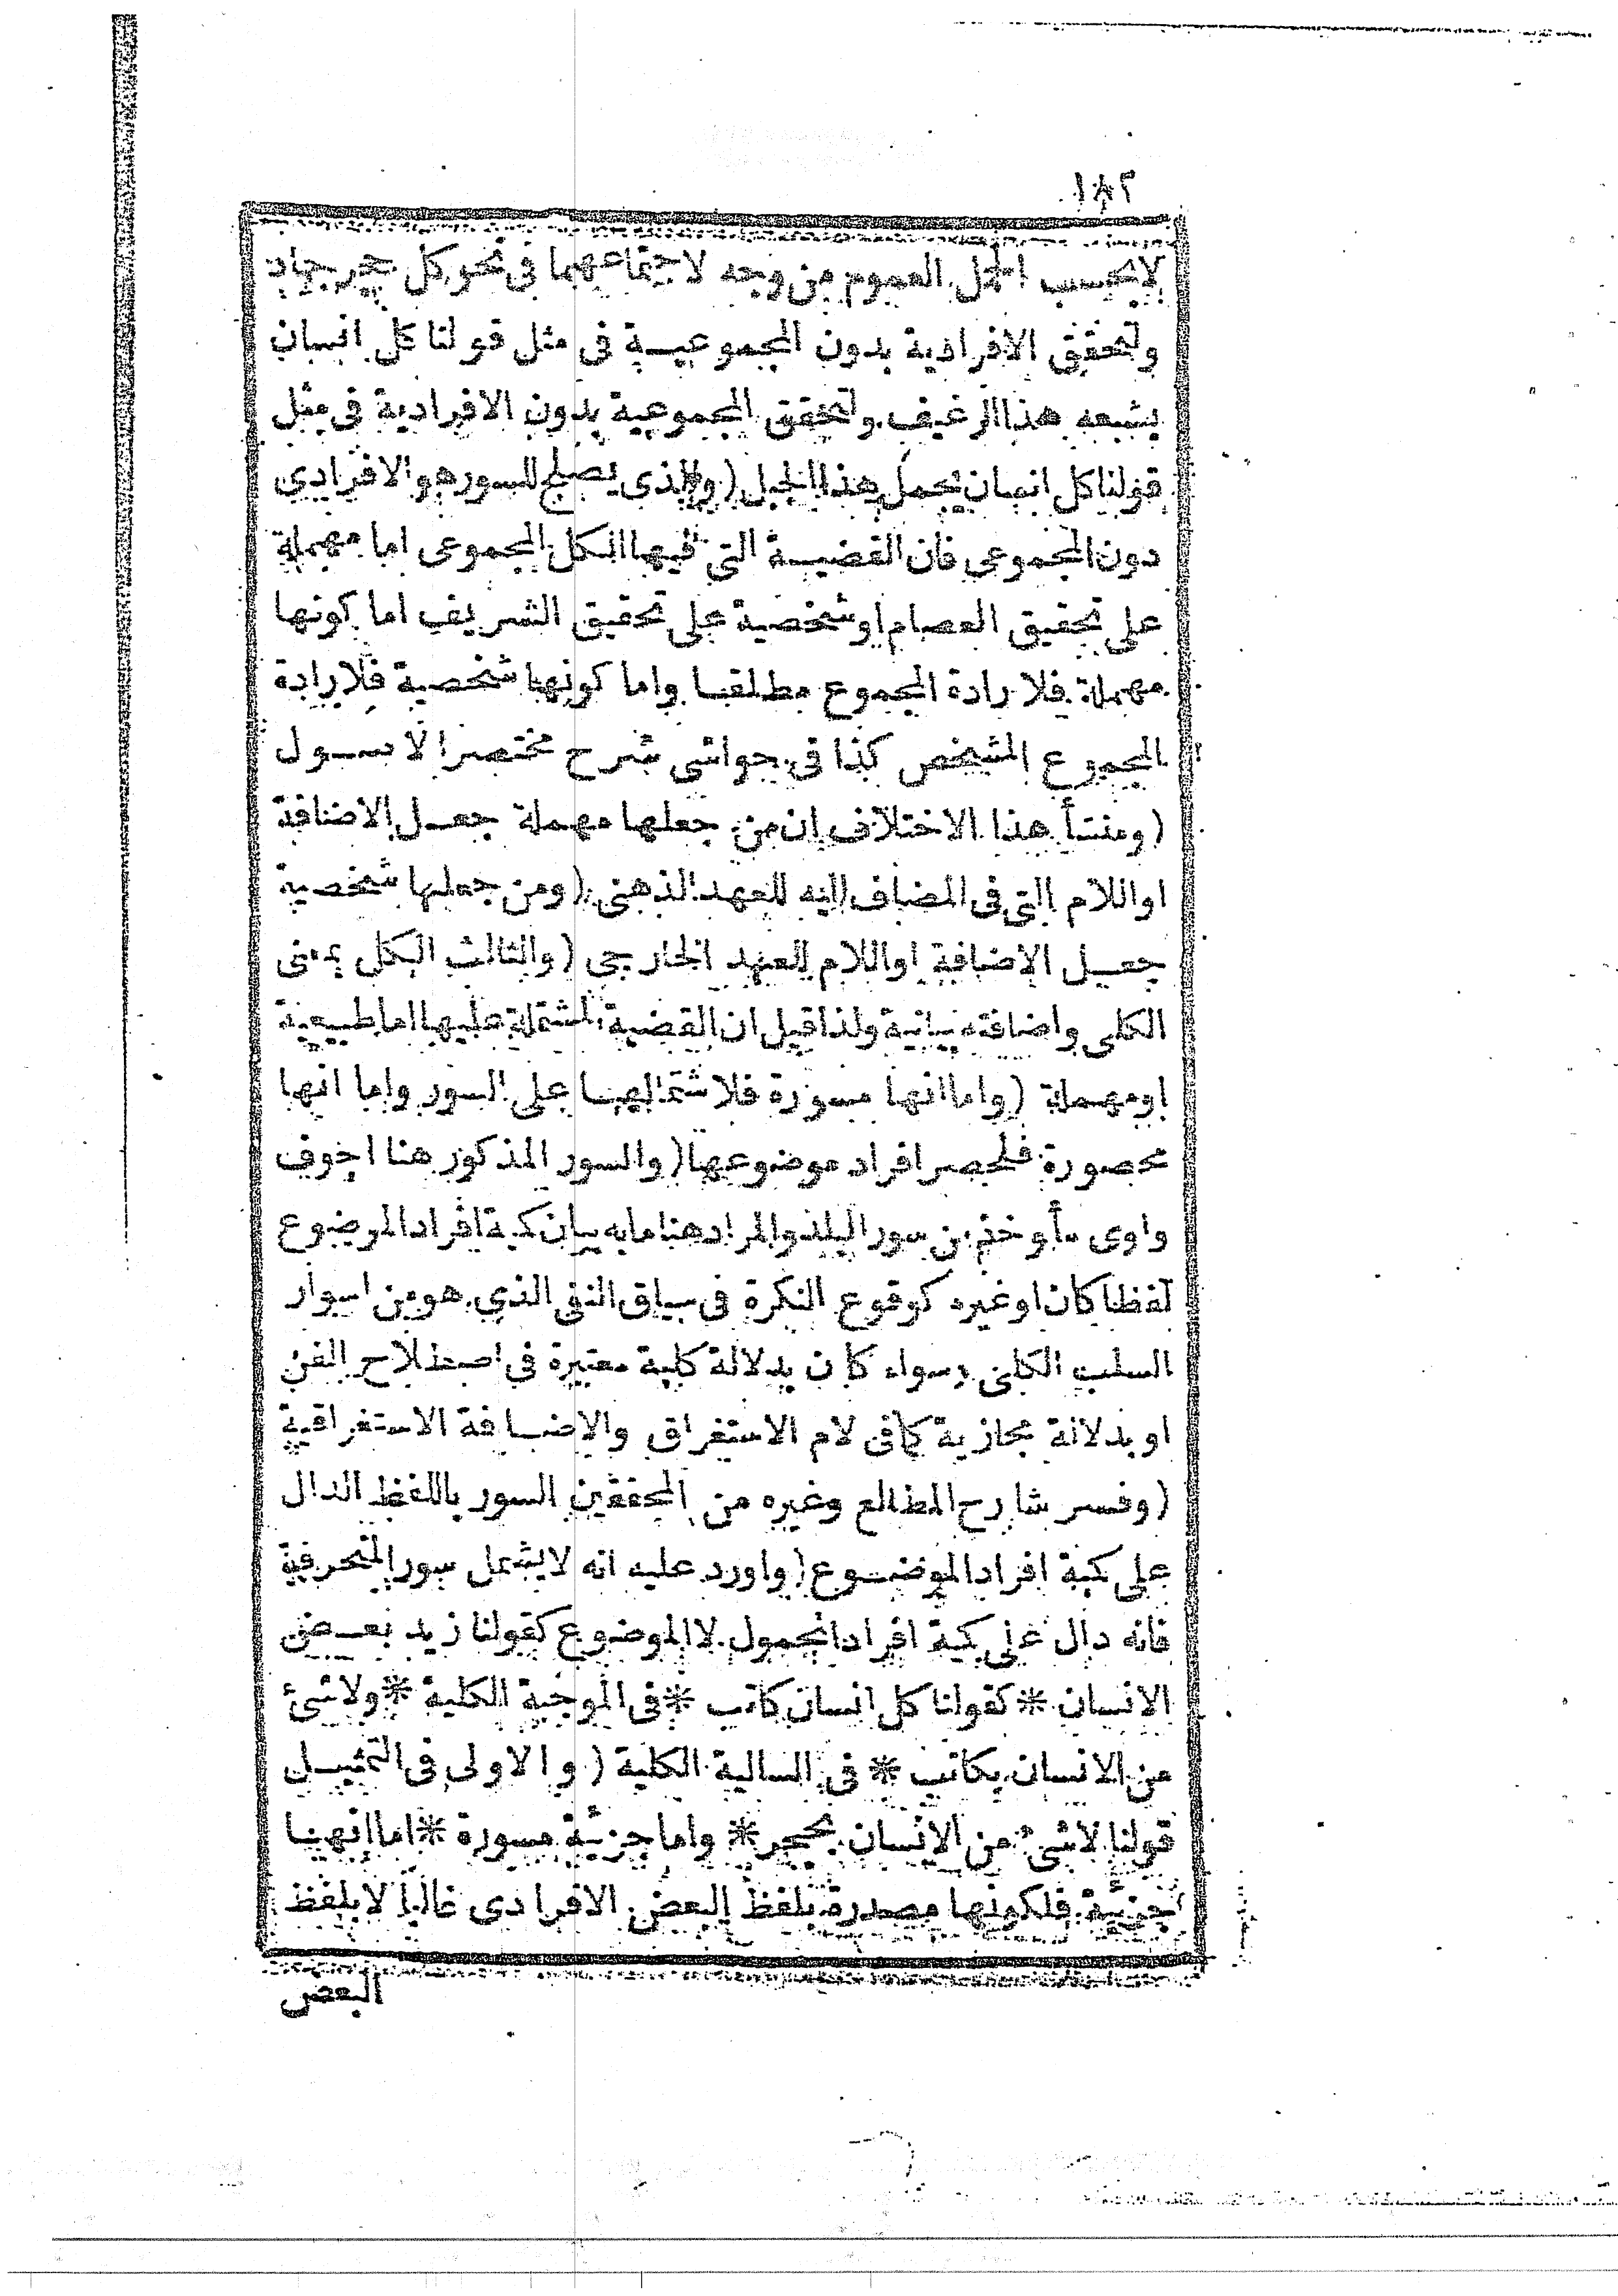 ١٨٢
لا بحسب الحمل العموم من وجه لاجتماعهما فى نحو كل حجر جماد
وتحقق الافرادية بدون المجموعيـــة فى مثل قولنا كل انسان
يشبعه هذا الرغيف وتحقق المجموعية بدون الافرادية فى مثل
قولنا كل انسان يحمل هذا الجبل (والذى يصلح للسور هو الافرادى
دون المجموعى فان القضيـــة التى فيها الكل المجموعى اما مهملة
على تحقيق العصام او شخصية على تحقيق الشريف اما كونها
مهملة فلارادة المجموع مطلقا واما كونها شخصية فلارادة
المجموع المشخص كذا فى حواشى شرح مختصر الاصــول
(ومنشأ هذا الاختلاف ان من جعلها مهملة جعــل الاضافة
او اللام التى فى المضاف اليه للعهد الذهنى (ومن جعلها شخصية
جعــل الاضافة او اللام للعهد الخارجى (والثالث الكل بمعنى
الكلى واضافته بيانية ولذا قيل ان القضية المشتملة عليها اما طبيعية
او مهملة (واما انها مسورة فلاشتمالهــا على السور واما انها
محصورة فلحصر افراد موضوعها (والسور المذكور هنا اجوف
واوى مأخوذ من سور البلد والمراد هنا ما به بيان كمية افراد الموضوع
لفظا كان او غيره كوقوع النكرة فى سياق النفى الذى هو من اسوار
السلب الكلى وسواء كان بدلالة كلية معتبرة فى اصطلاح الفن
او بدلالة مجازية كما فى لام الاستغراق والاضــافة الاستغراقية
(وفسر شارح المطالع وغيره من المحققين السور باللفظ الدال
على كمية افراد الموضــوع (واورد عليه انه لا يشمل سور المنحرفة
فانه دال على كمية افراد المحمول لا الموضوع كقولنا زيد بعــض
الانسان * كقولنا كل انسان كاتب * فى الموجبة الكلية * ولا شئ
من الانسان بكاتب * فى السالبة الكلية (والاولى فى التمثيــل
قولنا لا شئ من الانسان بحجر * واما جزئية مسورة * اما انهــا
جزئية فلكونها مصدرة بلفظ البعض الافرادى غالبا لا بلفظ
البعض